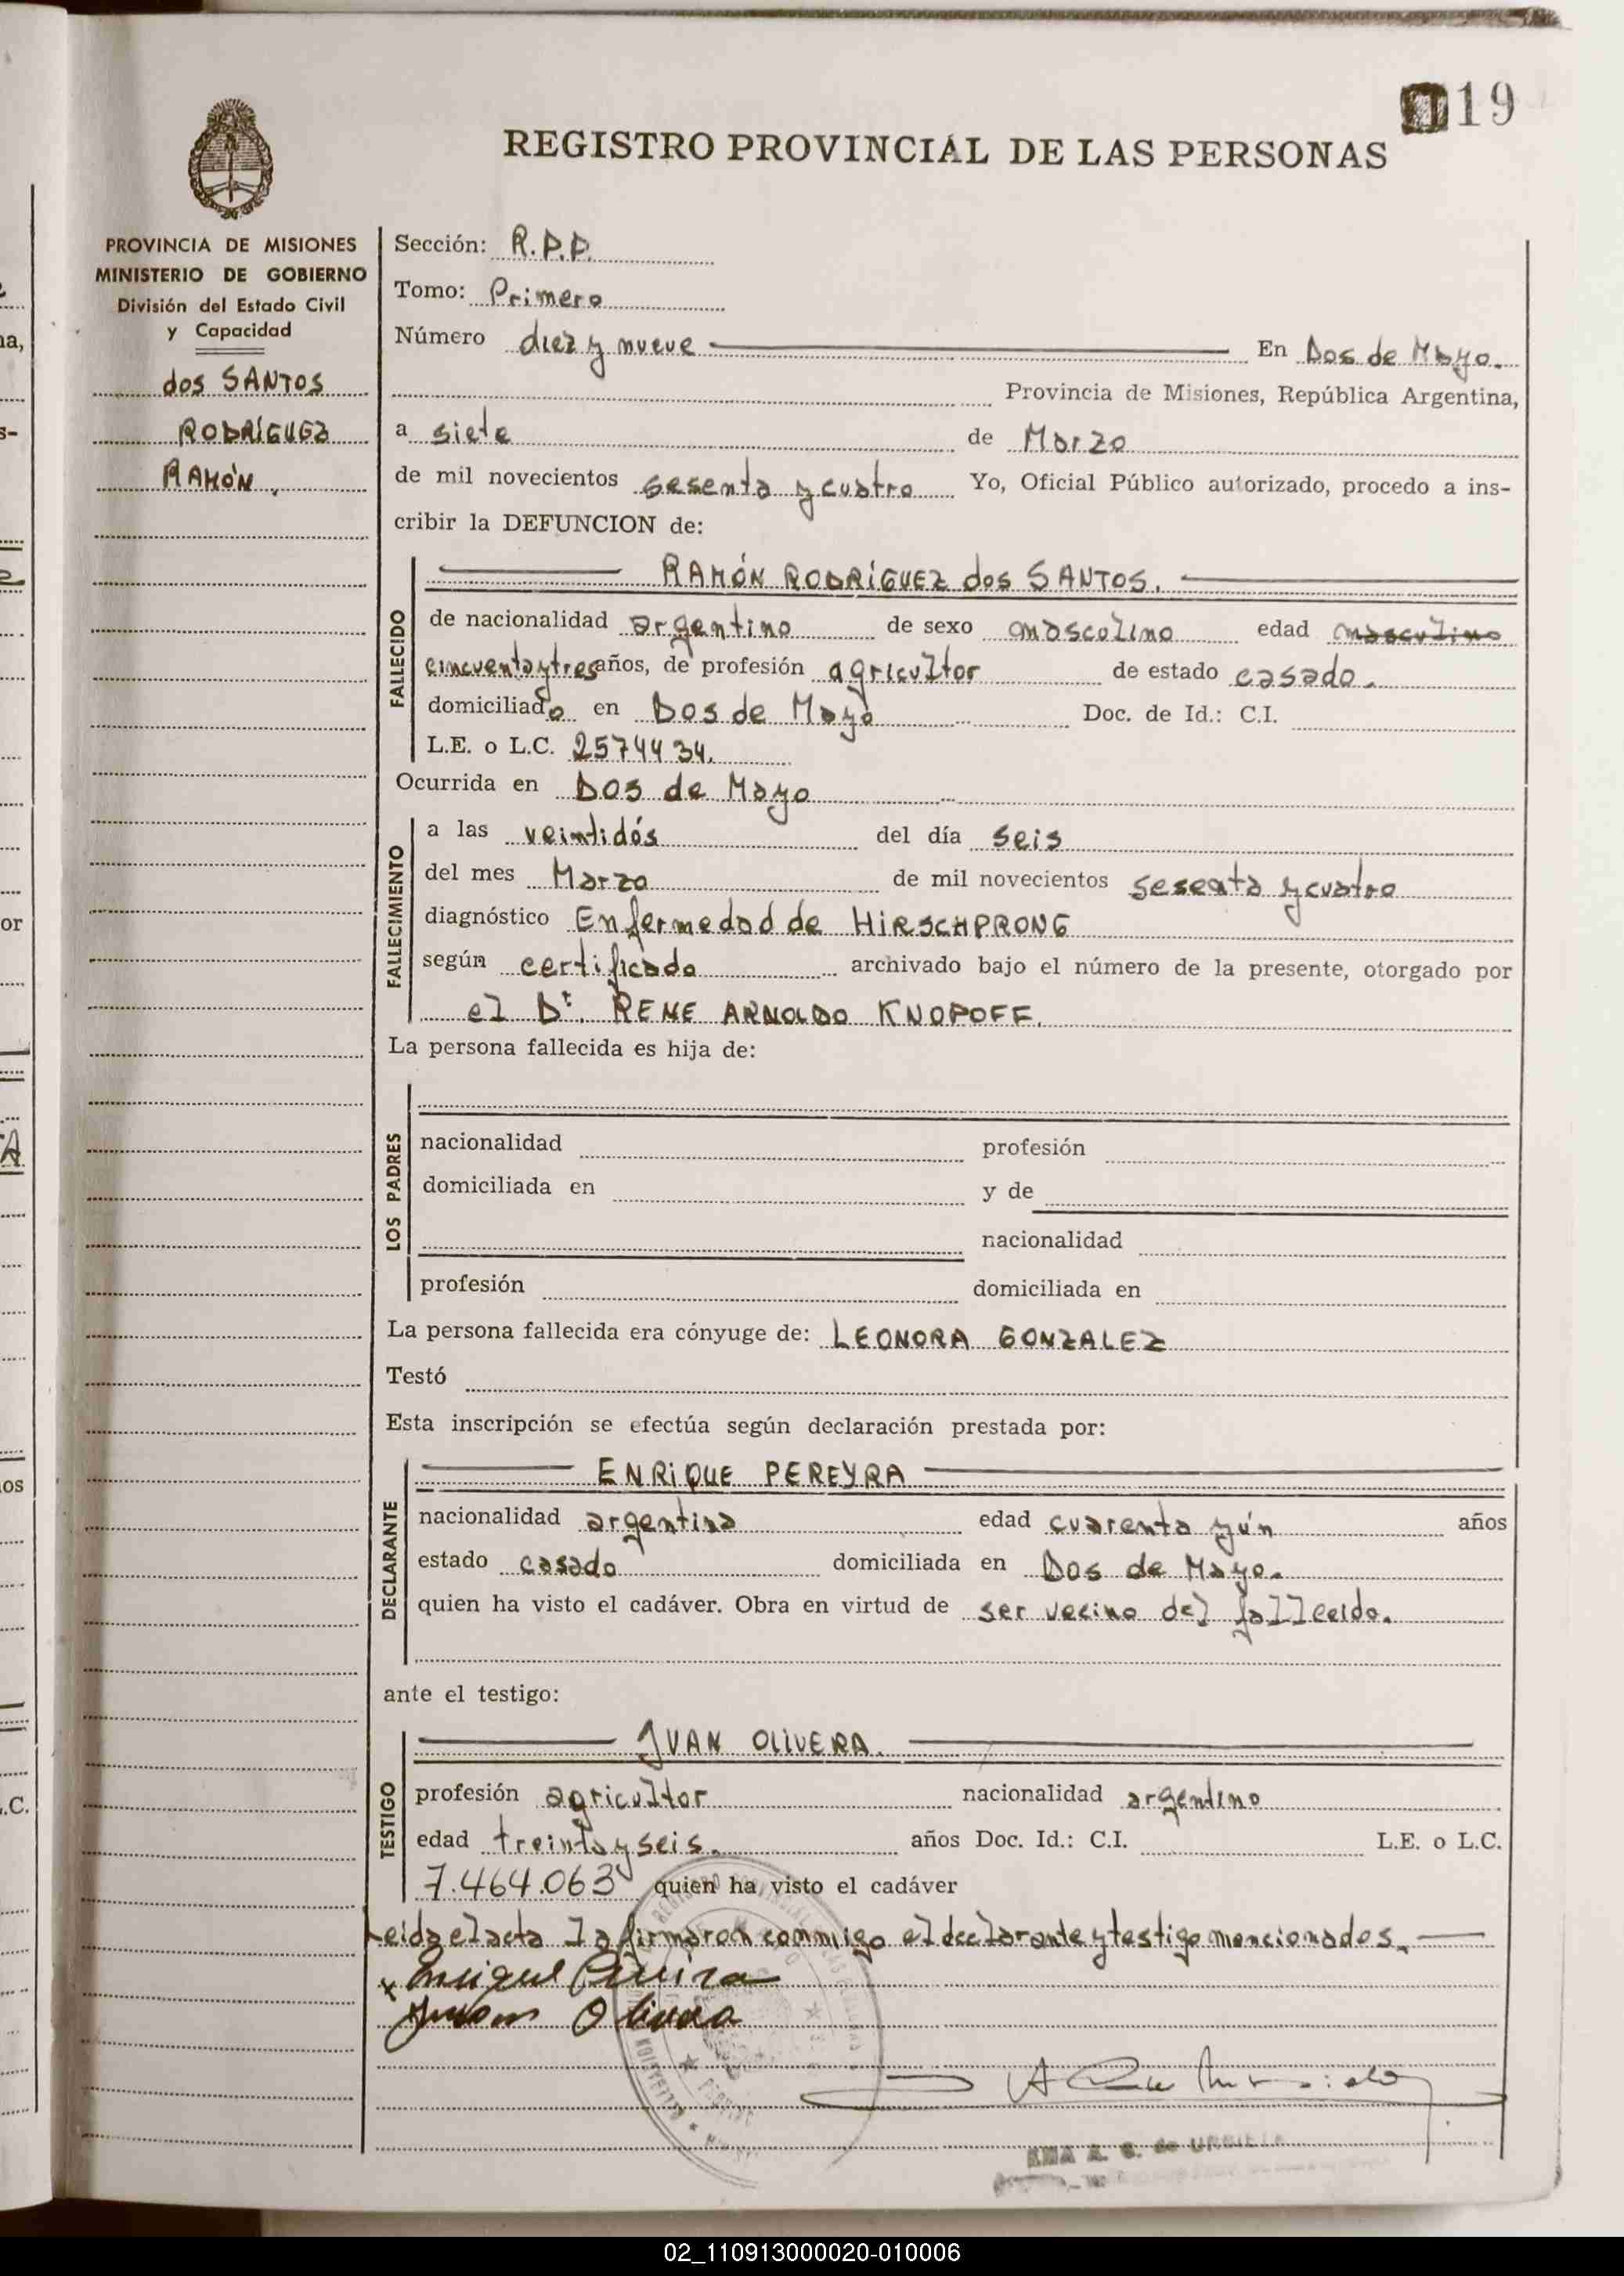 19
REGISTRO PROVINCIAL DE LAS PERSONAS
PROVINCIA DE MISIONES
MINISTERIO DE GOBIERNO
División del Estado Civil
y Capacidad
dos SANTOS
RODRÍGUEZ
RAMÓN.
Sección: R.P.P.
Tomo: Primero
Número diez y nueve En Dos de Mayo.
Provincia de Misiones, República Argentina,
a siete de Marzo
de mil novecientos sesenta y cuatro Yo, Oficial Público autorizado, procedo a ins-
cribir la DEFUNCION de:
RAMÓN RODRÍGUEZ dos SANTOS.
FALLECIDO
de nacionalidad argentino de sexo masculino edad masculino
cincuenta y tres años, de profesión agricultor de estado casado.
domiciliado en Dos de Mayo Doc. de Id.: C.I.
L.E. o L.C. 2574434.
Ocurrida en Dos de Mayo
FALLECIMIENTO
a las veintidós del día seis
del mes Marzo de mil novecientos sesenta y cuatro
diagnóstico Enfermedad de HIRSCHPRONG
según certificado archivado bajo el número de la presente, otorgado por
el Dr. RENE ARNOLDO KNOPOFF.
La persona fallecida es hija de:
LOS PADRES
nacionalidad profesión
domiciliada en y de
nacionalidad
profesión domiciliada en
La persona fallecida era cónyuge de: LEONORA GONZALEZ
Testó
Esta inscripción se efectúa según declaración prestada por:
ENRIQUE PEREYRA
DECLARANTE
nacionalidad argentina edad cuarenta y ún años
estado casado domiciliada en Dos de Mayo.
quien ha visto el cadáver. Obra en virtud de ser vecino del fallecido.
ante el testigo:
JUAN OLIVERA.
TESTIGO
profesión agricultor nacionalidad argentino
edad treinta y seis. años Doc. Id.: C.I. L.E. o L.C.
7.464.063 quien ha visto el cadáver
Leida el acta la firmaron commigo el declarante y testigo mencionados.
02_110913000020-010006